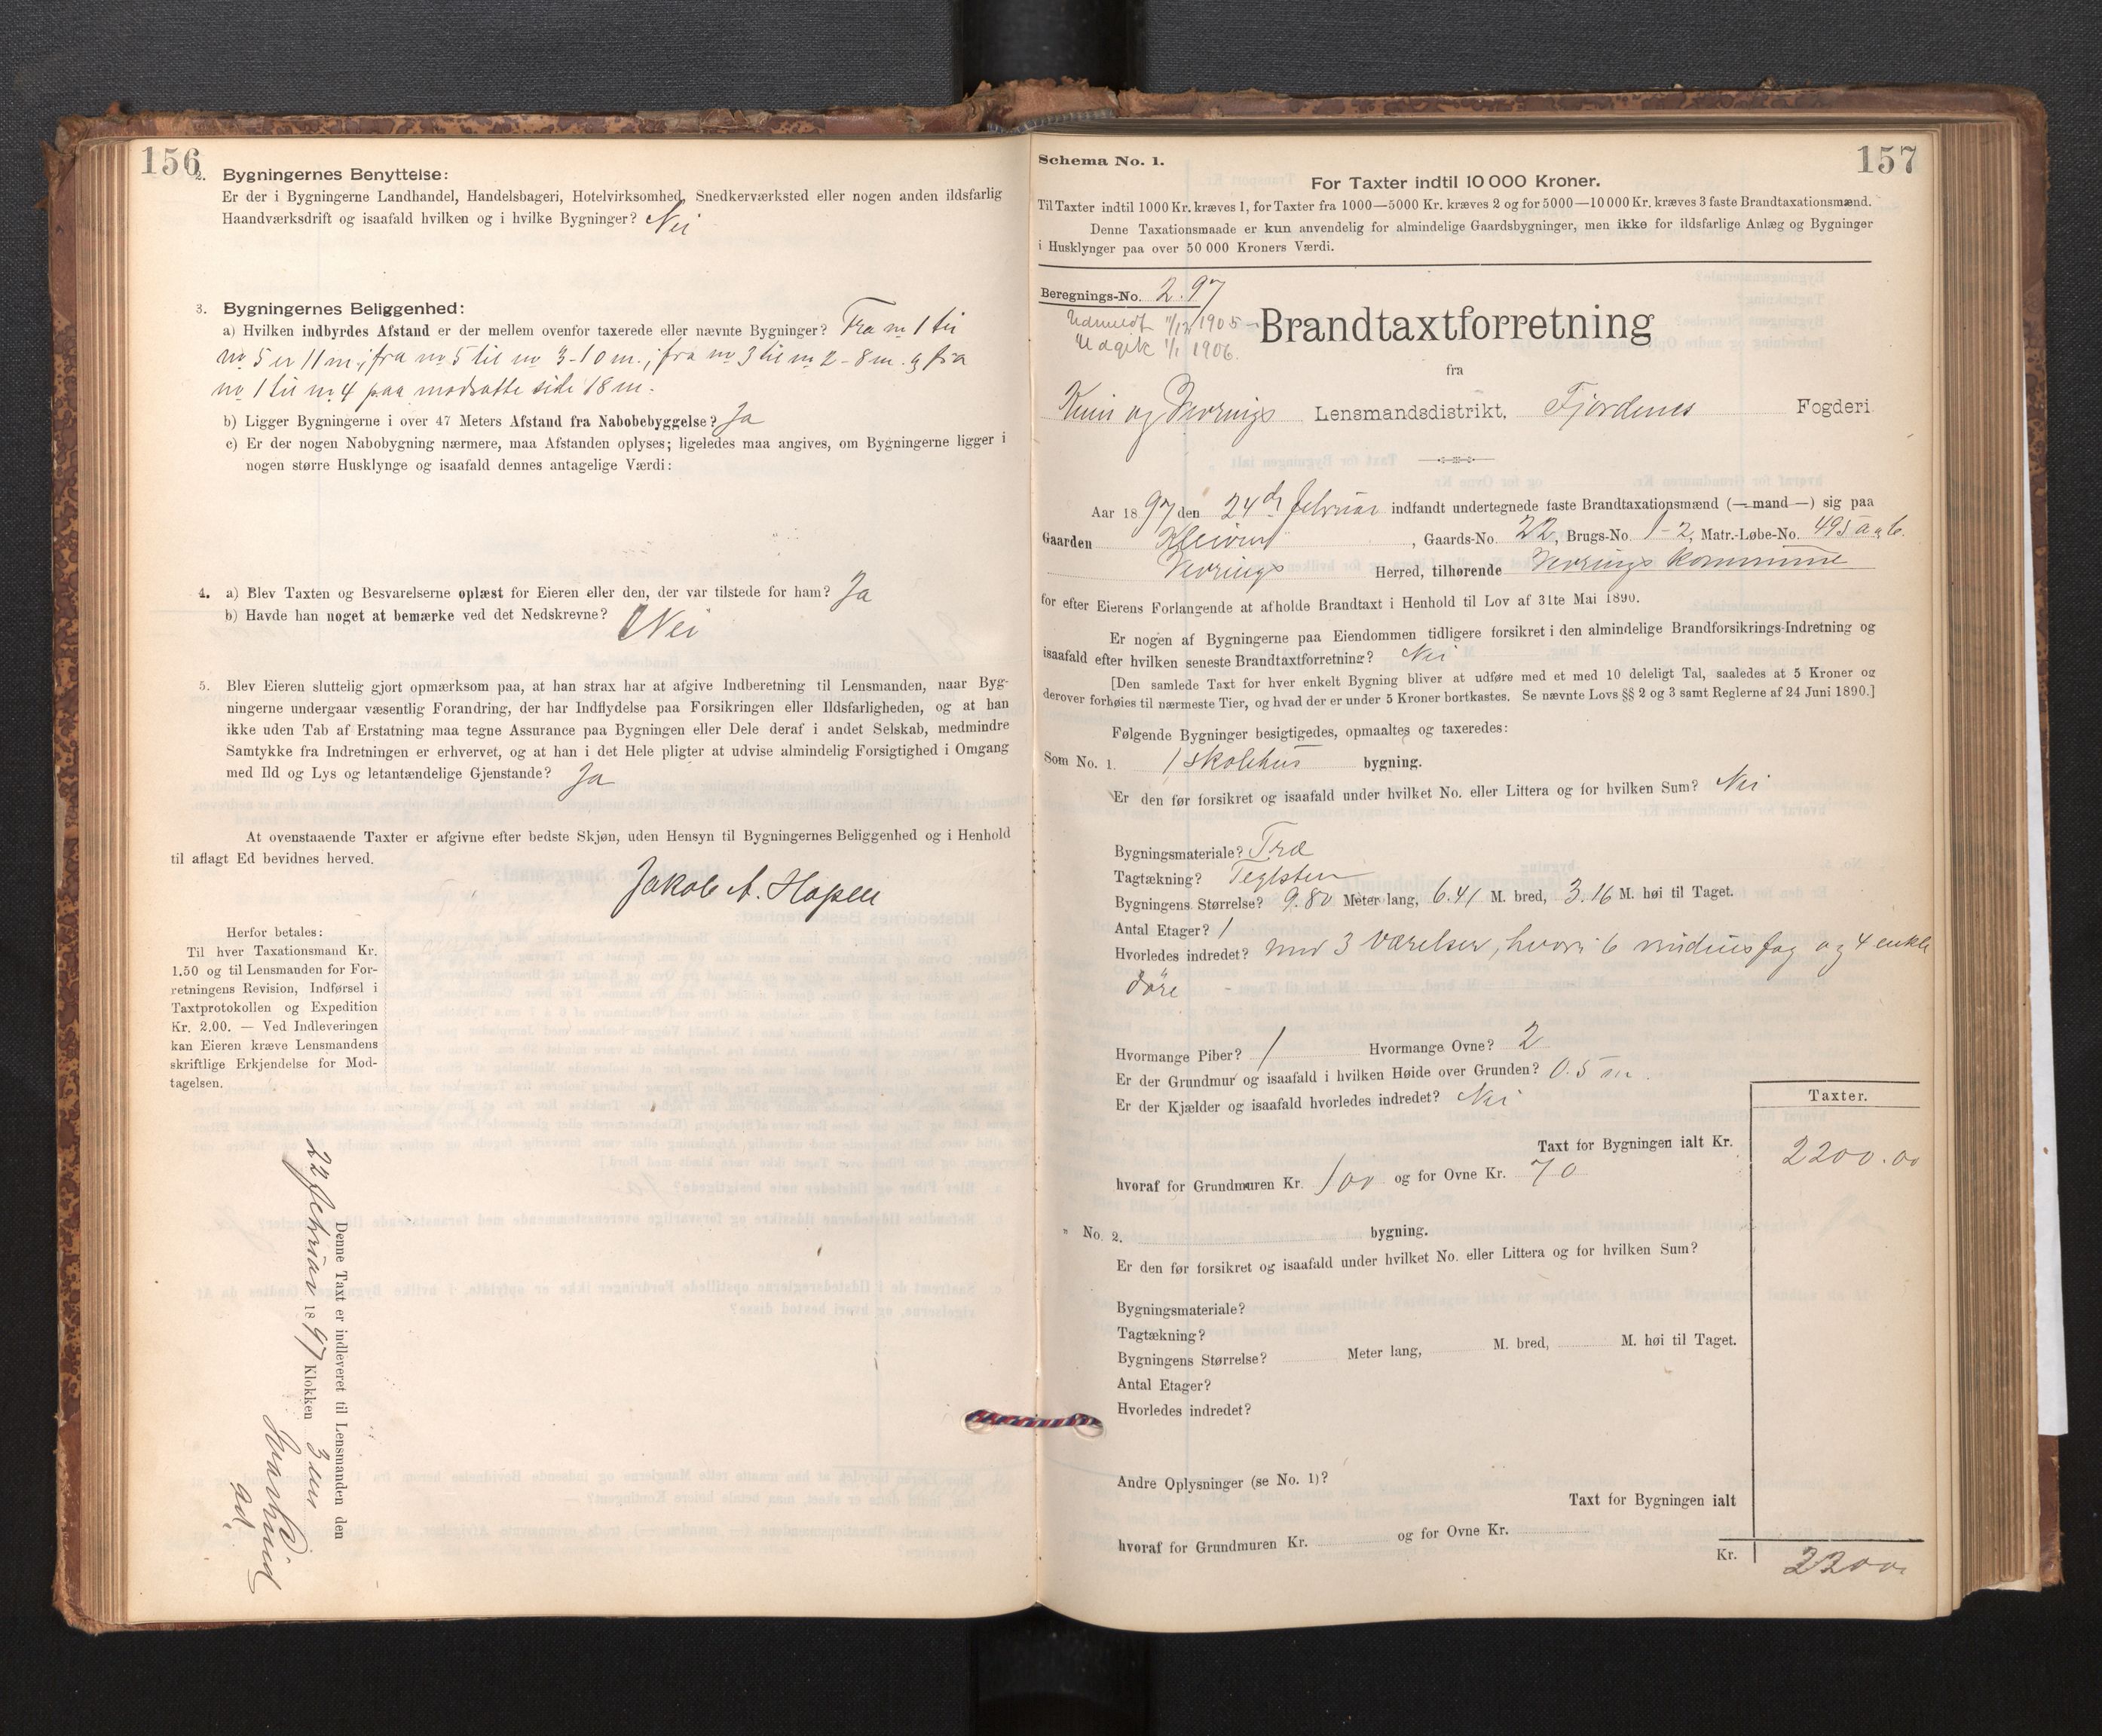 156
2. Bygningernes Benyttelse:
Er der i Bygningerne Landhandel, Handelsbageri, Hotelvirksomhed, Snedkerværksted eller nogen anden ildsfarlig
Haandværksdrift og isaafald hvilken og i hvilke Bygninger? Nei
3. Bygningernes Beliggenhed:
a) Hvilken indbyrdes Afstand er der mellem ovenfor taxerede eller nævnte Bygninger? Fra no 1 til
no 5 er 11 m; fra no 5 til no 3 - 10 m.; fra no 3 til no 2 - 8 m. og fra
no 1 til no 4 paa modsatte side 18 m.
b) Ligger Bygningerne i over 47 Meters Afstand fra Nabobebyggelse? Ja
c) Er der nogen Nabobygning nærmere, maa Afstanden oplyses; ligeledes maa angives, om Bygningerne ligger i
nogen større Husklynge og isaafald dennes antagelige Værdi:
4. a) Blev Taxten og Besvarelserne oplæst for Eieren eller den, der var tilstede for ham? Ja
b) Havde han noget at bemærke ved det Nedskrevne? Nei
5. Blev Eieren sluttelig gjort opmærksom paa, at han strax har at afgive Indberetning til Lensmanden, naar Byg-
ningerne undergaar væsentlig Forandring, der har Indflydelse paa Forsikringen eller Ildsfarligheden, og at han
ikke uden Tab af Erstatning maa tegne Assurance paa Bygningen eller Dele deraf i andet Selskab, medmindre
Samtykke fra Indretningen er erhvervet, og at han i det Hele pligter at udvise almindelig Forsigtighed i Omgang
med Ild og Lys og letantændelige Gjenstande? Ja
At ovenstaaende Taxter er afgivne efter bedste Skjøn, uden Hensyn til Bygningernes Beliggenhed og i Henhold
til aflagt Ed bevidnes herved.
Jakob A. Hopen
Herfor betales:
Til hver Taxationsmand Kr.
1.50 og til Lensmanden for For-
retningens Revision, Indførsel i
Taxtprotokollen og Expedition
Kr. 2.00. — Ved Indleveringen
kan Eieren kræve Lensmandens
skriftlige Erkjendelse for Mod-
tagelsen.
Denne Taxt er indleveret til Lensmanden den
22 februar 1897 Klokken 3 em
ad.
157
Schema No. 1.
For Taxter indtil 10 000 Kroner.
Til Taxter indtil 1000 Kr. kræves 1, for Taxter fra 1000—5000 Kr. kræves 2 og for 5000—10 000 Kr. kræves 3 faste Brandtaxationsmænd.
Denne Taxationsmaade er kun anvendelig for almindelige Gaardsbygninger, men ikke for ildsfarlige Anlæg og Bygninger
i Husklynger paa over 50 000 Kroners Værdi.
Beregnings-No. 297
Udmeldt 11/12 1905 -
Udgik 1/1 1906.
Brandtaxtforretning
fra
Kinn og Vevrings Lensmandsdistrikt, Fjordenes Fogderi
Aar 1897 den 24de februar indfandt undertegnede faste Brandtaxationsmænd (—mand—) sig paa
Gaarden Kleiven, Gaards-No. 22, Brugs-No. 1-2, Matr.-Løbe-No. 495 a og b.
Vevrings Herred, tilhørende Vevrings kommune
for efter Eierens Forlangende at afholde Brandtaxt i Henhold til Lov af 31te Mai 1890.
Er nogen af Bygningerne paa Eiendommen tidligere forsikret i den almindelige Brandforsikrings-Indretning og
isaafald efter hvilken seneste Brandtaxtforretning? Nei
[Den samlede Taxt for hver enkelt Bygning bliver at udføre med et med 10 deleligt Tal, saaledes at 5 Kroner og
derover forhøies til nærmeste Tier, og hvad der er under 5 Kroner bortkastes. Se nævnte Lovs §§ 2 og 3 samt Reglerne af 24 Juni 1890.]
Følgende Bygninger besigtigedes, opmaaltes og taxeredes:
Som No. 1. 1 skolehus bygning.
Er den før forsikret og isaafald under hvilket No. eller Littera og for hvilken Sum? Nei
Bygningsmateriale? Træ
Tagtækning? Teglsten
Bygningens Størrelse? 9.80 Meter lang, 6.41 M. bred, 3.16 M. høi til Taget.
Antal Etager? 1
Hvorledes indredet? med 3 værelser, hvori 6 vinduesfag og 4 enkle
döre
Hvormange Piber? 1 Hvormange Ovne? 2
Er der Grundmur og isaafald i hvilken Høide over Grunden? 0.5 m.
Er der Kjælder og isaafald hvorledes indredet? Nei
Taxter.
Taxt for Bygningen ialt Kr. 2200.00
hvoraf for Grundmuren Kr. 100 og for Ovne Kr. 70
" No. 2. bygning.
Er den før forsikret og isaafald under hvilket No. eller Littera og for hvilken Sum?
Bygningsmateriale?
Tagtækning?
Bygningens Størrelse? Meter lang, M. bred, M. høi til Taget.
Antal Etager?
Hvorledes indredet?
Andre Oplysninger (se No. 1)?
Taxt for Bygningen ialt
hvoraf for Grundmuren Kr. og for Ovne Kr.
Kr. 2200.